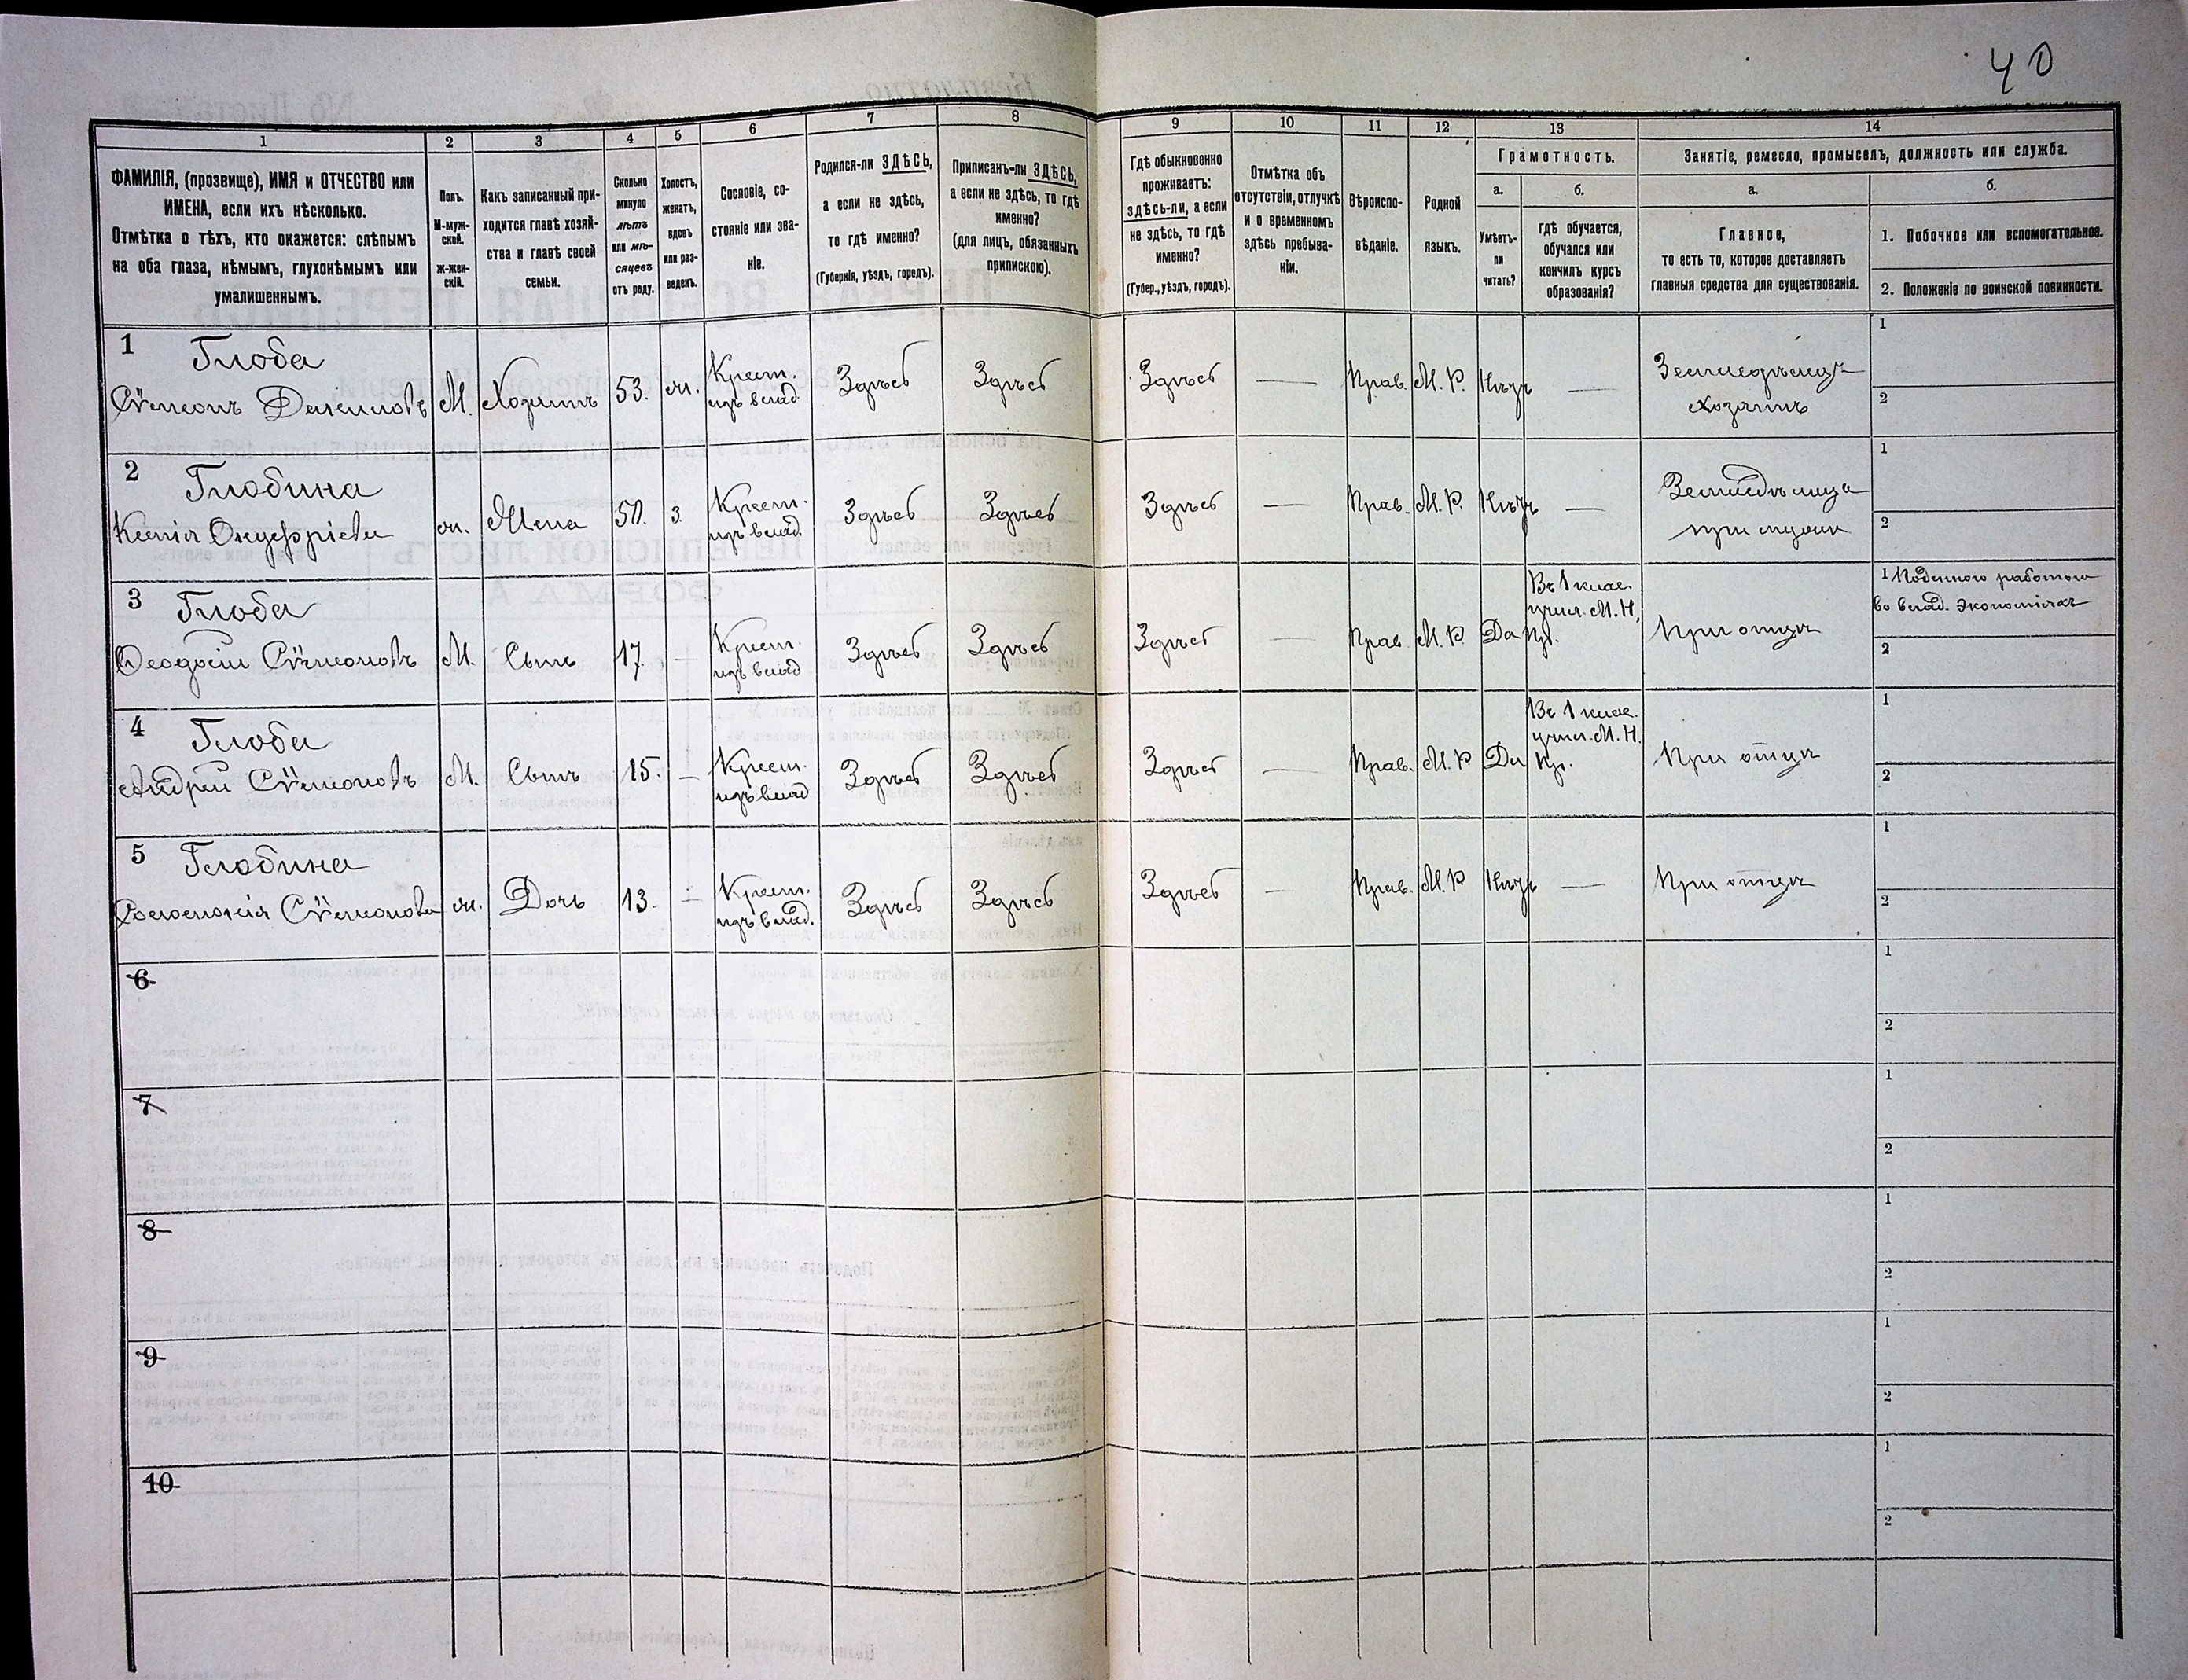 40
1
2
3
4
5
6
7
8
9
10
11
12
13
14
ФАМИЛІЯ, (прозвище), ИМЯ и ОТЧЕСТВО или
ИМЕНА, если ихъ нѣсколько.
Отмѣтка о тѣхъ, кто окажется: слѣпымъ
на оба глаза, нѣмымъ, глухонѣмымъ или
умалишеннымъ.
Полъ.
М-муж-
ской.
ж-жен-
скій.
Какъ записанный при-
ходится главѣ хозяй-
ства и главѣ своей
семьи.
Сколько
минуло
лѣтъ
или мѣ-
сяцевъ
отъ роду.
Холостъ,
женатъ,
вдовъ
или раз-
веденъ.
Сословіе, со-
стояніе или зва-
ніе.
Родился-ли ЗДѢСЬ,
а если не здѣсь,
то гдѣ именно?
(Губернія, уѣздъ, городъ).
Приписанъ-ли ЗДѢСЬ,
а если не здѣсь, то гдѣ
именно?
(для лицъ, обязанныхъ
припискою).
Гдѣ обыкновенно
проживаетъ:
здѣсь-ли, а если
не здѣсь, то гдѣ
именно?
(Губер., уѣздъ, городъ).
Отмѣтка объ
отсутствіи, отлучкѣ
и о временномъ
здѣсь пребыва-
ніи.
Вѣроиспо-
вѣданіе.
Родной
языкъ.
Грамотность.
а.
б.
Умѣетъ-
ли
читать?
гдѣ обучается,
обучался или
кончилъ курсъ
образованія?
Занятіе, ремесло, промыселъ, должность или служба.
а.
б.
Главное,
то есть то, которое доставляетъ
главныя средства для существованія.
1. Побочное или вспомогательное.
2. Положеніе по воинской повинности.
1 Глоба
Сѵмеонъ Даниловъ М. Хозяинъ 53. ж. Крест. изъ влад. Здѣсь Здѣсь Здѣсь — Прав. М. Р. Нѣтъ — Земледѣлецъ
хозяинъ
1
2
2 Глобина
Ксенія Онуфріева ж. Жена 50. з. Крест. изъ влад. Здѣсь Здѣсь Здѣсь — Прав. М. Р. Нѣтъ — Земледѣлица
при мужѣ
1
2
3 Глоба
Ѳеодосій Сѵмеоновъ М. Сынъ 17. — Крест. изъ влад. Здѣсь Здѣсь Здѣсь — Прав. М. Р. Да Въ 1 клас.
учил. М. Н.
Пр.
При отцѣ
1 Поденною работою
во влад. экономіяхъ
2
4 Глоба
Андрей Сѵмеоновъ М. Сынъ 15. — Крест. изъ влад. Здѣсь Здѣсь Здѣсь — Прав. М. Р. Да Въ 1 клас.
учил. М. Н.
Пр.
При отцѣ
1
2
5 Глобина
Сѵмеонова ж. Дочь 13. — Крест. изъ влад. Здѣсь Здѣсь Здѣсь — Прав. М. Р. Нѣтъ — При отцѣ
1
2
6
1
2
7
1
2
8
1
2
9
1
2
10
1
2